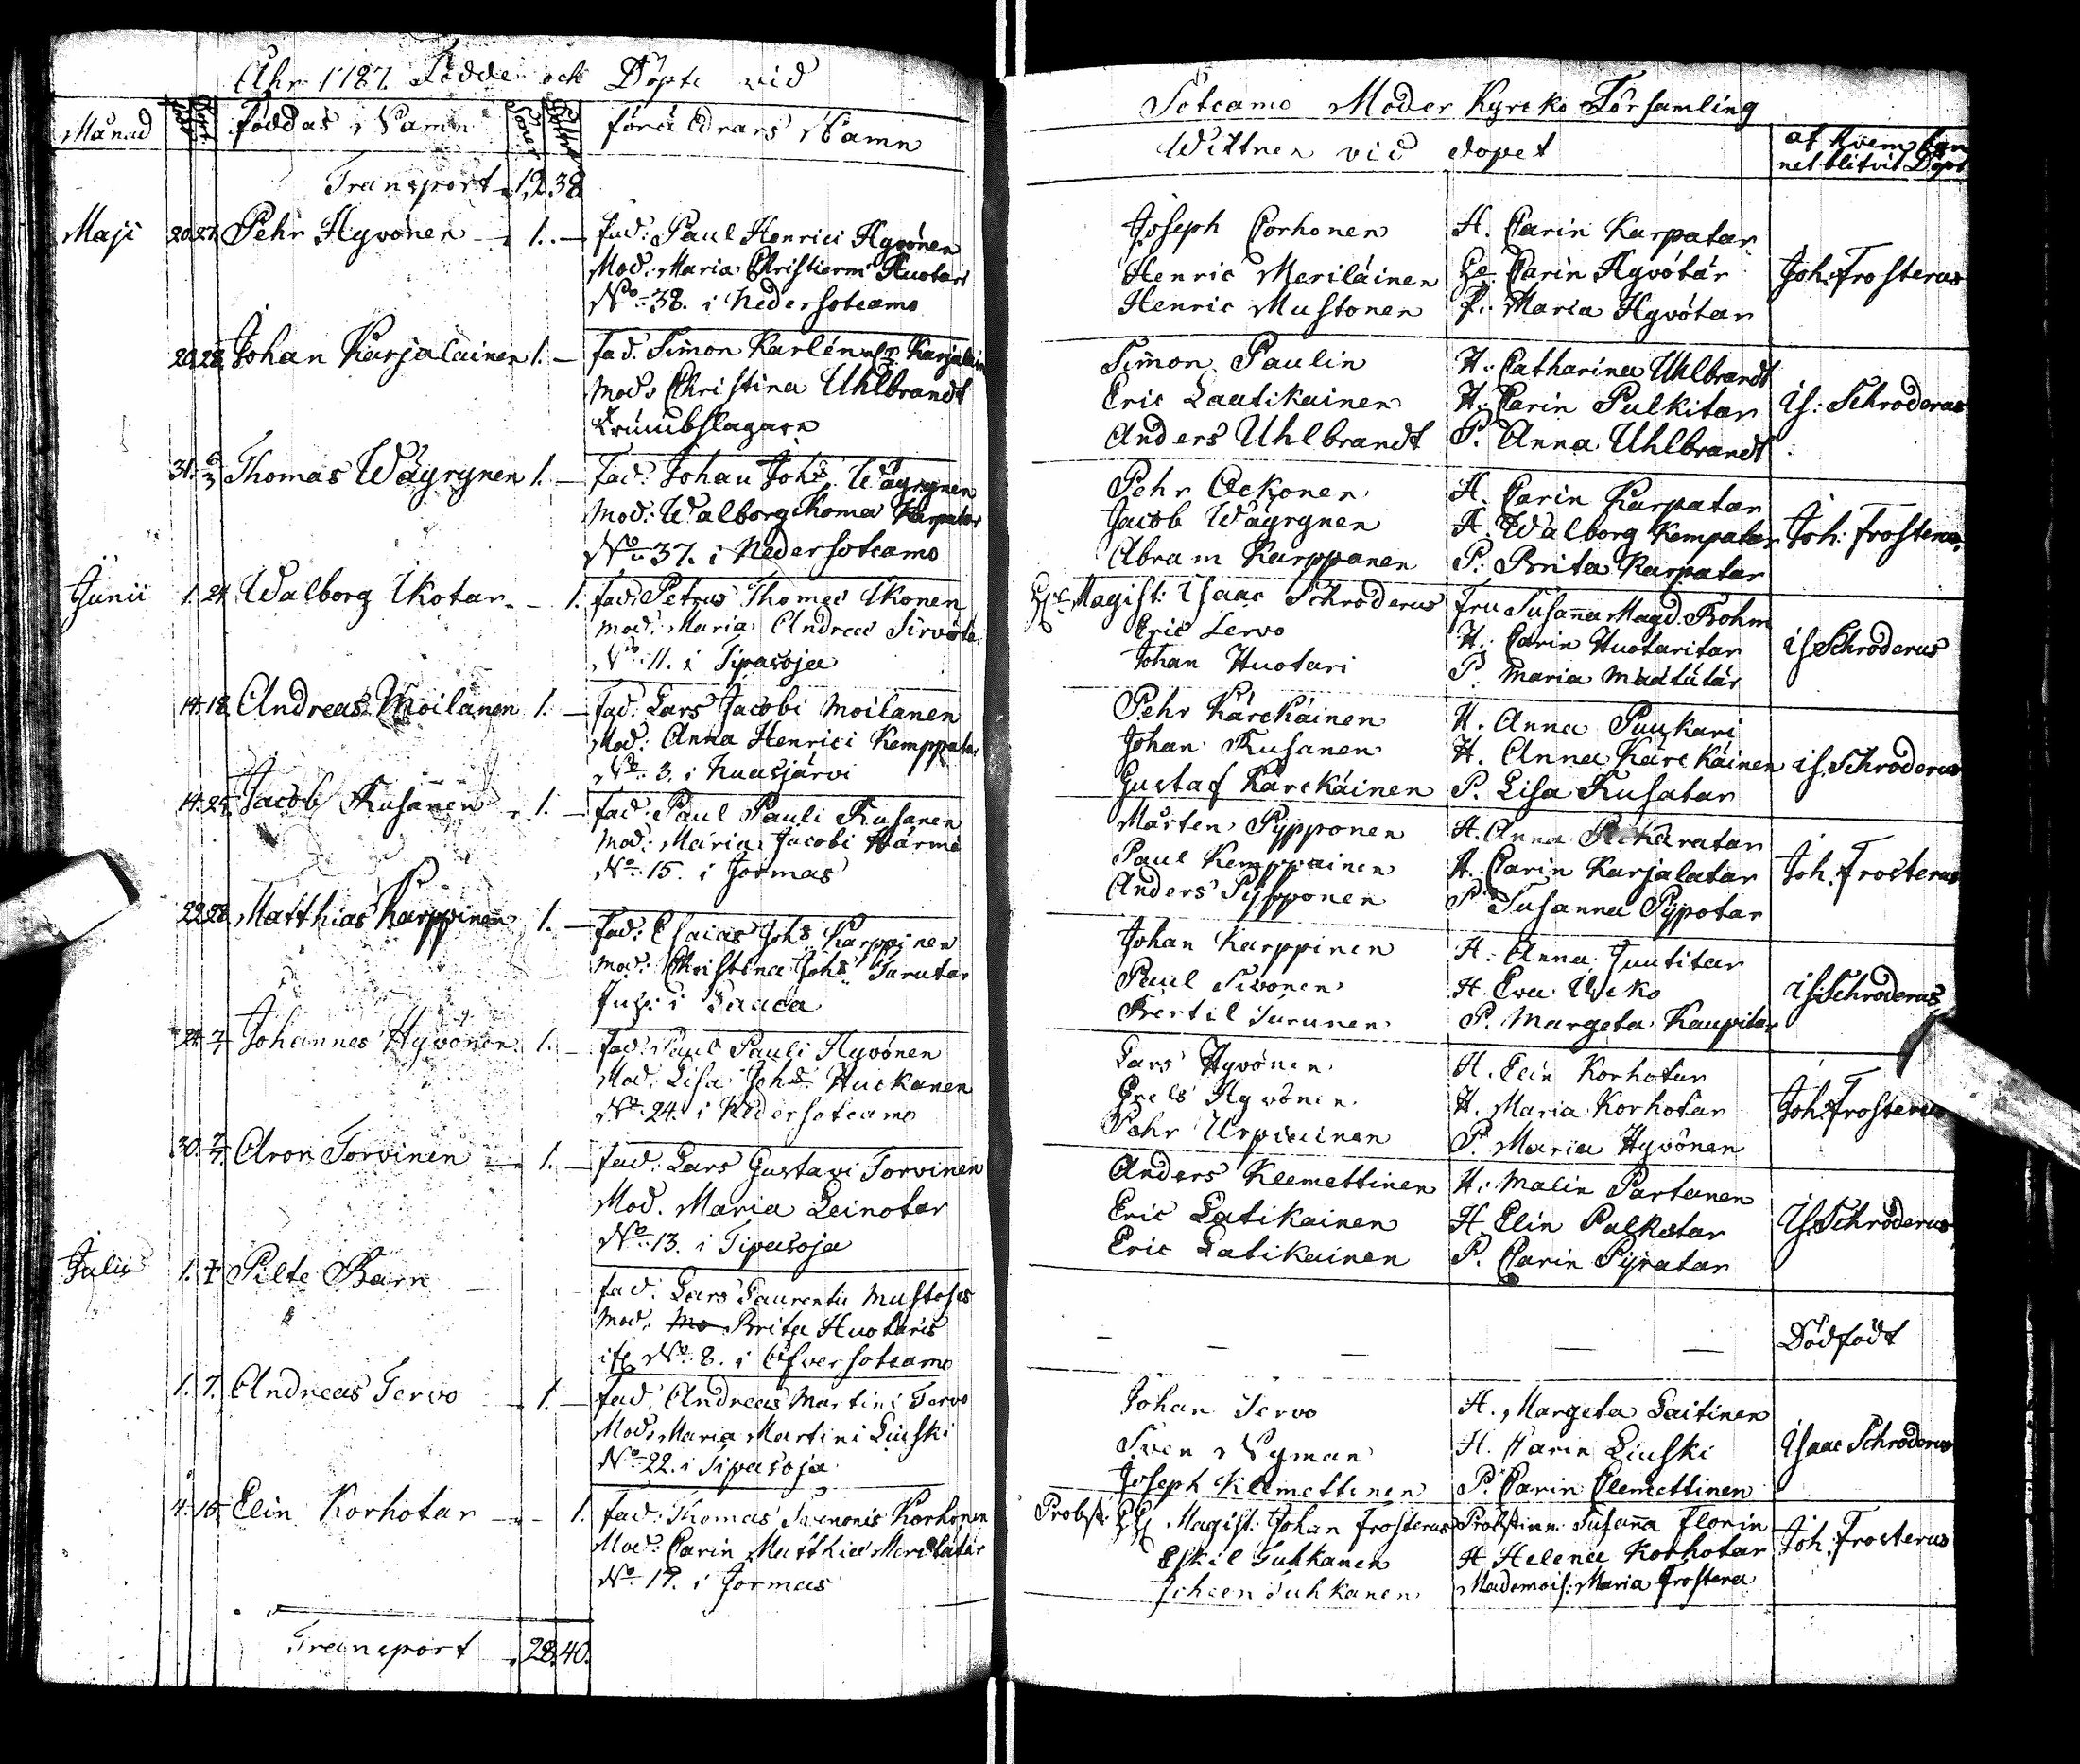 Åhr 1787. Födde och Döpte vid
Månad Född Döpt föddas Namn Söner Döttrar föräldrars Namn
Transport 19. 38
Maji 20. 27. Pehr Hyvönen 1. fad: Paul Henrici Hyvönen
Mod: Maria Christierni Huotari
No 38. i Nedersotcamo
20. 28. Johan Karjalainen 1. fad. Simon Karlén Karjalain
Mod: Christina Uhlbrandt
Trumbslagare
31. 3/6 Thomas Wäyrynen 1. fad: Johan Johs Wäyrynen
Mod: Walborg Thomæ Karpatar
No 37. i Nedersotcamo
Junii 1. 24. Walborg Ikotar 1. fad: Petrus Thomæ Ikonen
Mod: Maria Andreæ Sirvötar
No 11. i Tipasoja
14. 18. Andreas Moilanen 1. fad: Lars Jacobi Moilanen
Mod: Anna Henrici Kemppatar
No 3. i Nuasjärvi
14. 24. Jacob Kusanen 1. fad: Paul Pauli Kusanen
Mod: Maria Jacobi Härmä
No 15. i Jormas
22. 28. Matthias Karppinen 1. fad: Esaias Johs Karppinen
Mod: Christina Johs Turutar
Inh: i Laaca
24. 1/7 Johannes Hyvönen 1. fad: Paul Pauli Hyvönen
Mod: Lisa Johs Huckanen
No 24. i Nedersotcamo
30. 2/7 Aron Torvinen 1. fad: Lars Gustavi Torvinen
Mod. Maria Leinotar
No 13. i Tipasoja
Julii 1. Pilte Barn fad: Lars Laurentii Mustoses
Mod: Brita Huotaris
No 8. i Öfversotcamo
1. 7. Andreas Tervo 1. fad. Andreas Martini Tervo
Mod: Maria Martini Liuski
No 22. i Tipasoja
4. 15. Elin Korhotar 1. fad: Thomas Svenonis Korhonen
Mod: Carin Matthiæ Merilätär
No 19. i Jormas
Transport 28. 40.
Sotcamo Moder Kyrcko Församling
Wittnen vid dopet af hvem bar
net blifvit Döpt
Joseph Corhonen H. Carin Karpatar
Henric Meriläinen Carin Hyvötär Joh: Frosterus
Henric Mustonen P. Maria Hyvötar
Simon Paulin H. Catharina Uhlbrandt
Eric Laatikainen H. Carin Pulkitar Is: Schroderus
Anders Uhlbrandt P. Anna Uhlbrandt
Pehr Ackonen H. Carin Karpatar
Jacob Wäyrynen H. Walborg Kempatar Joh: Frosterus
Abram Karppanen P. Brita Karpatar
Magist: Isaac Schroderus Fru Susanna Magd. Bohm
Eric Tervo H. Carin Huotaritar Is Schroderus
Johan Huotari P. Maria Määtätär
Pehr Kärckäinen H. Anna Puukari
Johan Kusanen H. Anna Kärckäinen Is. Schroderus
Gustaf Kärckäinen P. Lisa Kusatar
Mårten Pypponen H. Anna
Paul Kemppainen H. Carin Karjalatar Joh. Frosterus
Anders Pypponen P. Susanna Pypotar
Johan Karppinen H. Anna Juutitar
Paul Sivonen H. Eva Is: Schroderus
Bertil Turunen P. Margeta Kaupitar
Lars Hyvönen H. Elin Korhotar
Grels Hyvönen H. Maria Korhotar Joh: Frosterus
Pehr Urpiainen P. Maria Hyvönen
Anders Klemettinen H. Malin Partanen
Eric Latikainen H. Elin Palkotar Is: Schroderus
Eric Latikainen P. Carin Pyratar
— — — — Dödfödt
Johan Tervo H. Margeta Laitinen
Sven Nyman H. Carin Liuski Isaac Schroderus
Joseph Klemettinen P. Carin Clemettinen
Probst: Magist: Johan Frosterus Probstinn: Susanna Florin
Eskil Tuhkanen H. Helena Korhotar Joh: Frosterus
Tuhkanen Mademois: Maria Frostera